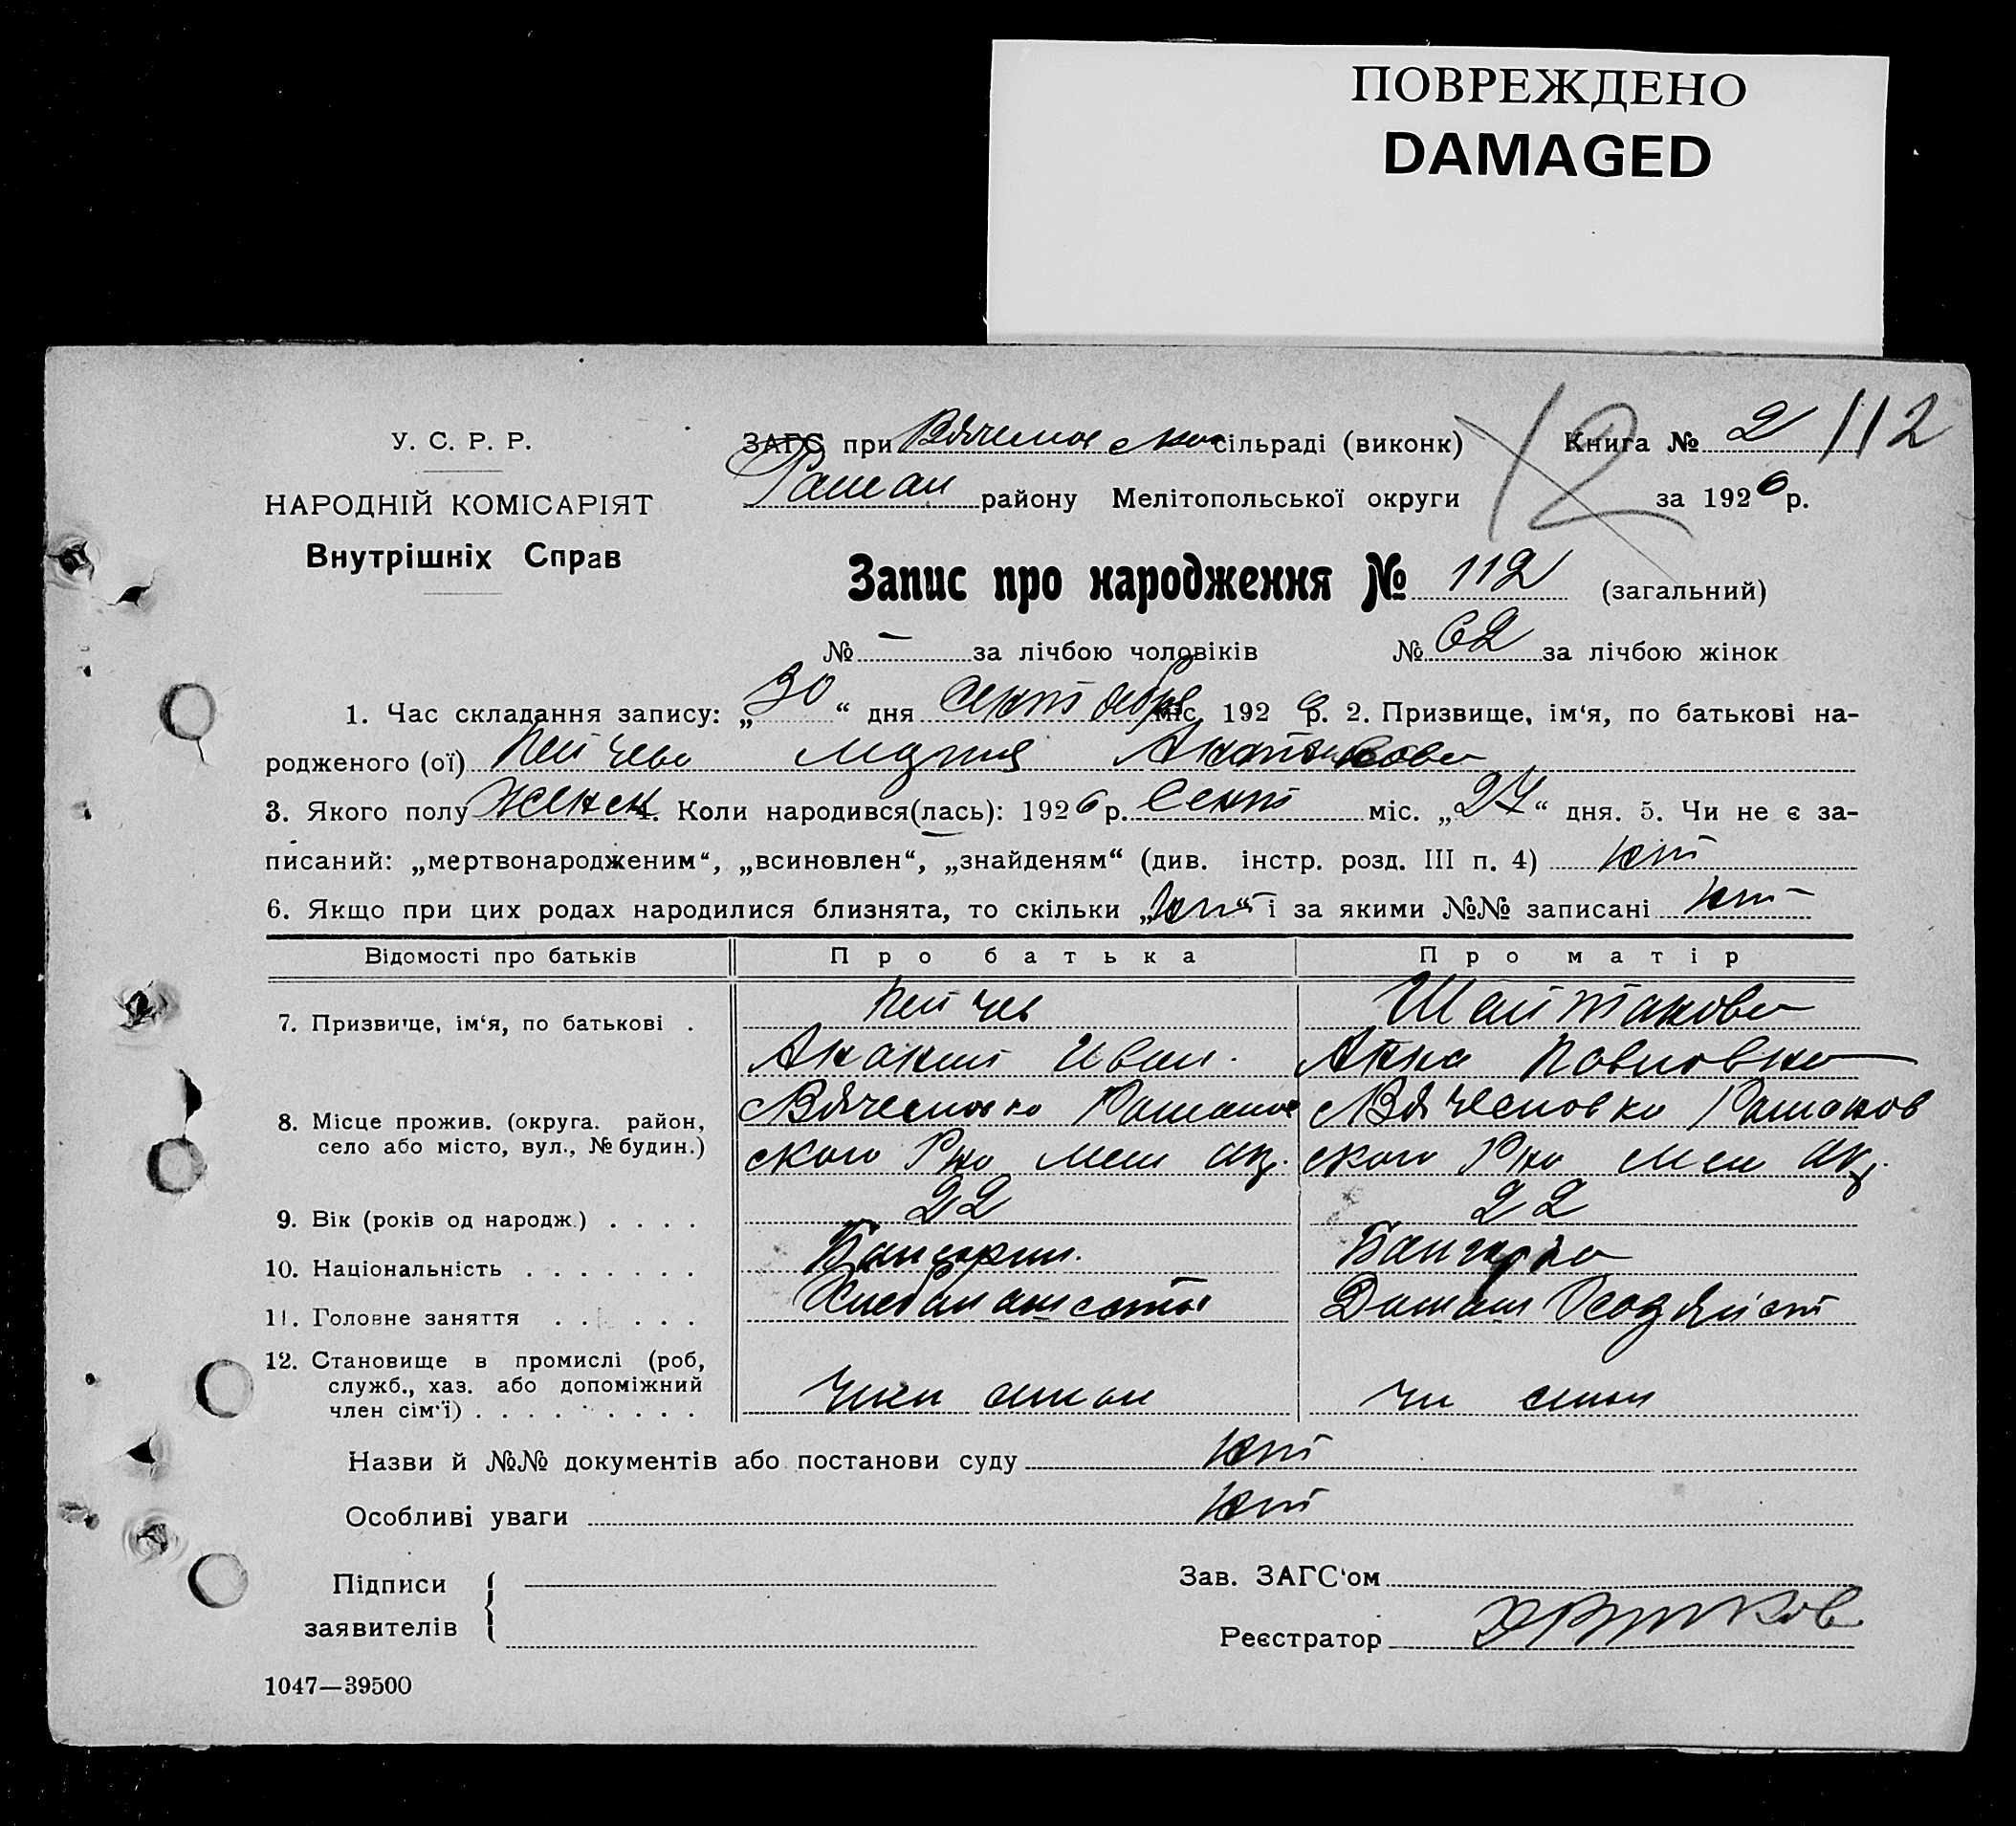 ПОВРЕЖДЕНО
DAMAGED
У. С. Р. Р.
НАРОДНІЙ КОМІСАРІЯТ
Внутрішніх Справ
ЗАГС при сільраді (виконк) Книга № 2 112
Роман району Мелітопольської округи за 1926 р.
12
Запис про народження № 112 (загальний)
№ — за лічбою чоловіків № 62 за лічбою жінок
1. Час складання запису: „30“ дня Сентября міс. 192 6 р. 2. Призвище, ім‘я, по батькові на-
родженого (ої) Пейчева Мария
3. Якого полу Женск 4. Коли народився(лась): 1926 р. Сент міс. „27“ дня. 5. Чи не є за-
писаний: „мертвонародженим“, „всиновлен“, „знайденям“ (див. інстр. розд. III п. 4) нет
6. Якщо при цих родах народилися близнята, то скільки „нет“ і за якими №№ записані нет
Відомості про батьків Про батька Про матір
7. Призвище, ім‘я, по батькові . Пейчев Шайтанова
Ананий Иван. Анна Павловна
8. Місце прожив. (округа. район, Вячесловка Романов Вячесловка Романов
село або місто, вул., № будин.) ского Рна Мел окр. ского Рна Мел окр.
9. Вік (років од народж.) . . . . 22 22
10. Національність . . . . . . . Болгарин. Болгарка
11. Головне заняття . . . . . . Хлебопашество Домаш Хозяйст
12. Становище в промислі (роб,
служб., хаз. або допоміжний
член сім‘ї) . . . . . . . . . член семьи чл семьи
Назви й №№ документів або постанови суду нет
Особливі уваги нет
Підписи Зав. ЗАГС‘ом
заявителів Реєстратор
1047—39500